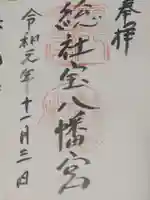 奉拝
総社宮八幡宮
令和元年十一月三日